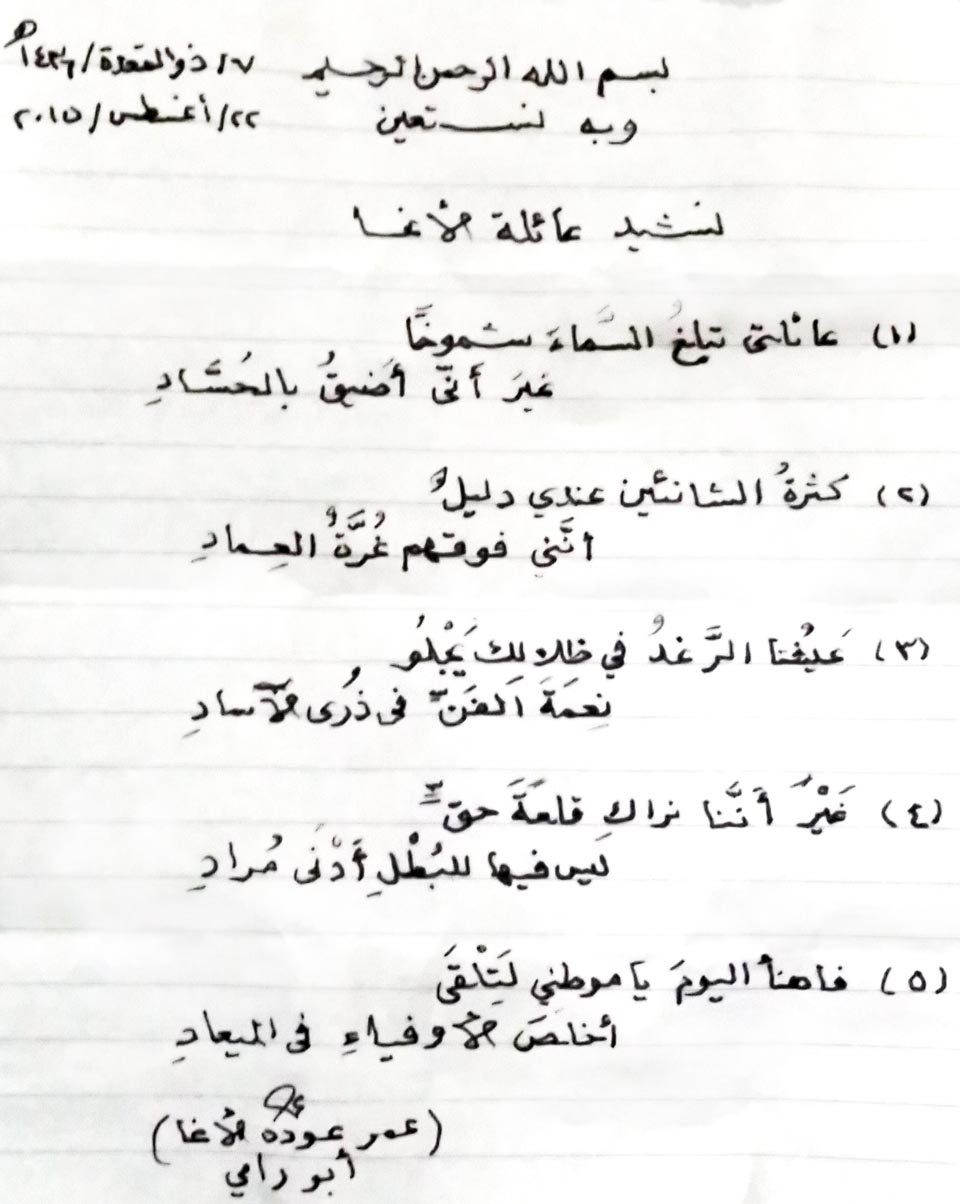 بسم الله الرحمن الرحيم
٠٧/ ذو القعدة/ ١٤٣٦هـ
وبه نستعين
٢٢/ أغسطس/ ٢٠١٥
نشيد عائلة الأغا
(١) عائلتي تبلغُ السَّماءَ شموخًا
غيرَ أنّي أضيقُ بالحُسَّادِ
(٢) كثرةُ الشانئين عندي دليلٌ
أنَّني فوقهم غُرَّةُ العِمادِ
(٣) عَيشُنا الرَّغدُ في ظلالِك يَجْلُو
نِعمَةَ الفَنِّ في ذُرى الآسادِ
(٤) غَيْرَ أنَّنا نراكِ قلعَةَ حقٍّ
ليس فيها للبُطْلِ أَدْنَى مُرادِ
(٥) فاهنأ اليومَ يا موطني لَتِلْقَى
أخلصَ الأوفياءِ في الميعادِ
(عمر عودة الأغا)
أبو رامي